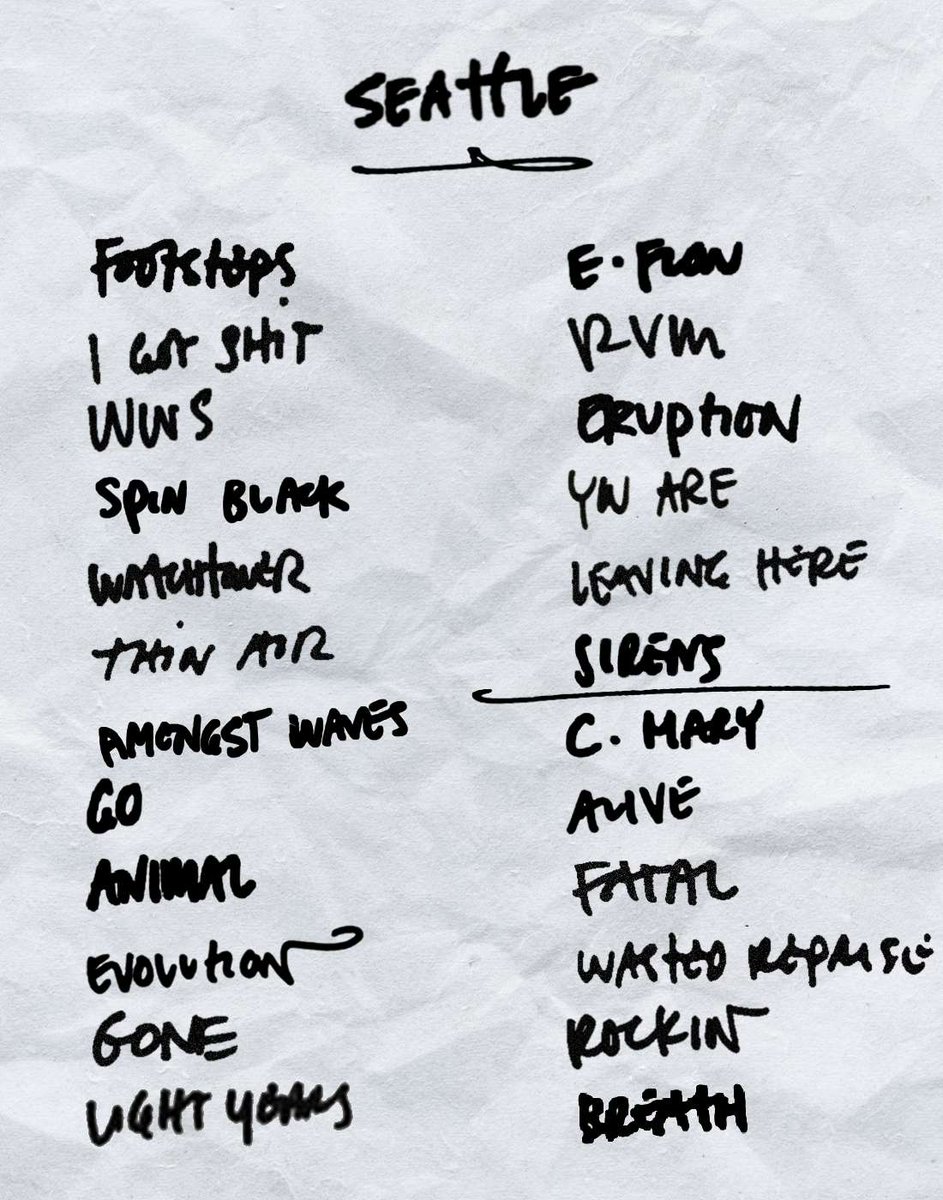 SEATTLE
FOOTSTEPS
I GOT SHIT
WWS
SPIN BLACK
WATCHTOWER
THIN AIR
AMONGST WAVES
GO
ANIMAL
EVOLUTION
GONE
LIGHT YEARS
E. FLOW
RVM
ERUPTION
YOU ARE
LEAVING HERE
SIRENS
C. MARY
ALIVE
FATAL
WASTED REPRISE
ROCKIN
BREATH